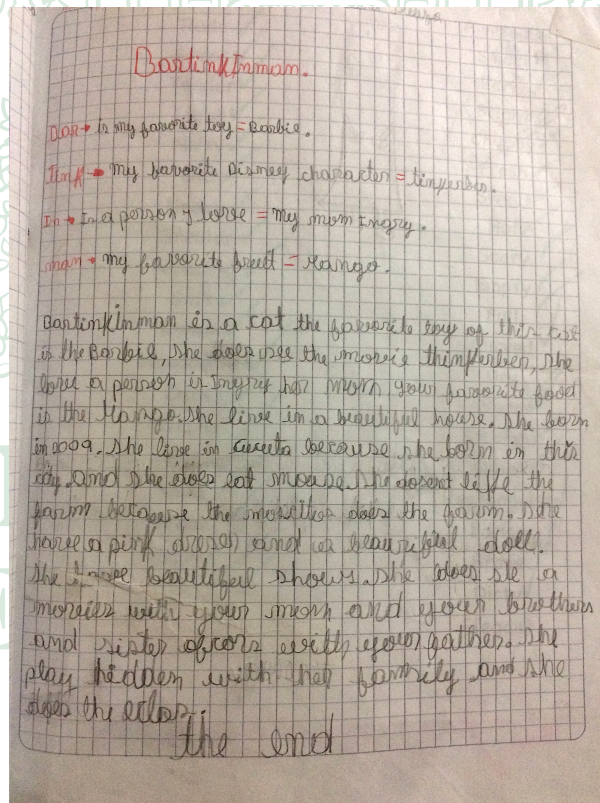 BartinkInman.
Bar → Is my favorite toy = Barbie.
Tink → my favorite Disney character = tinkerber.
In → Is a person I love = my mom Ingry.
man → my favorite fruit = Mango.
BartinkInman is a cat the favorite toy of this cat
is the Barbie, she does see the movie thinkerber, she
love a person is Ingry her mom your favorite food
is the Mango. she live in a beautiful house. she born
in 2009. she live in Cucuta because she born in this
city. and she does eat mouse. she dosent like the
farm because the does the farm. she
have a pink dresses and a beautiful doll.
she have beautiful shows. she does se a
movies with your mom and your brothers
and sister ofcors with your father. she
play hidden with her family and she
does the
the end